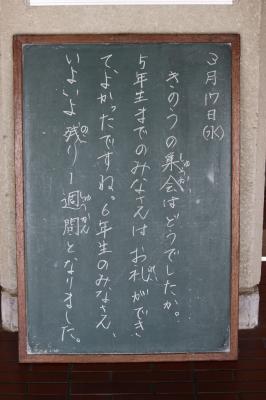 3月17日(水)
きのうの集会はどうでしたか。
5年生までのみなさんはお礼ができ
て、よかったですね。6年生のみなさん、
いよいよ残り1週間となりました。